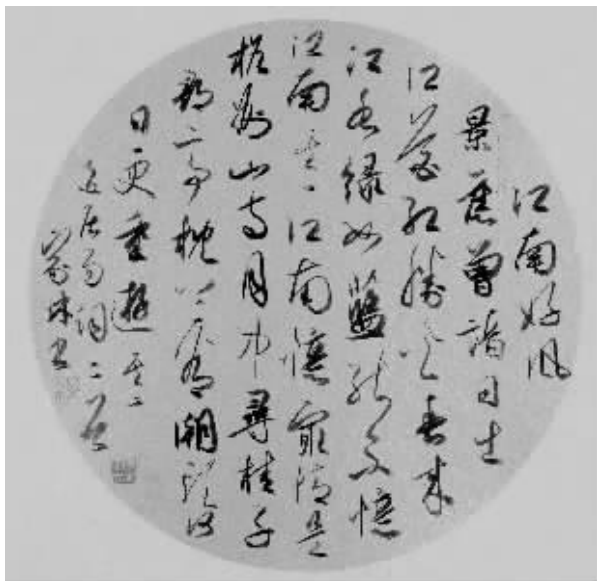 江南好風
景舊曾諳日出
江花紅勝火春來
江水綠如藍能不憶
江南其一江南憶最憶是
杭州山寺月中尋桂子
郡亭枕上看潮頭何
日更重遊其二
白居易詞二首
林書